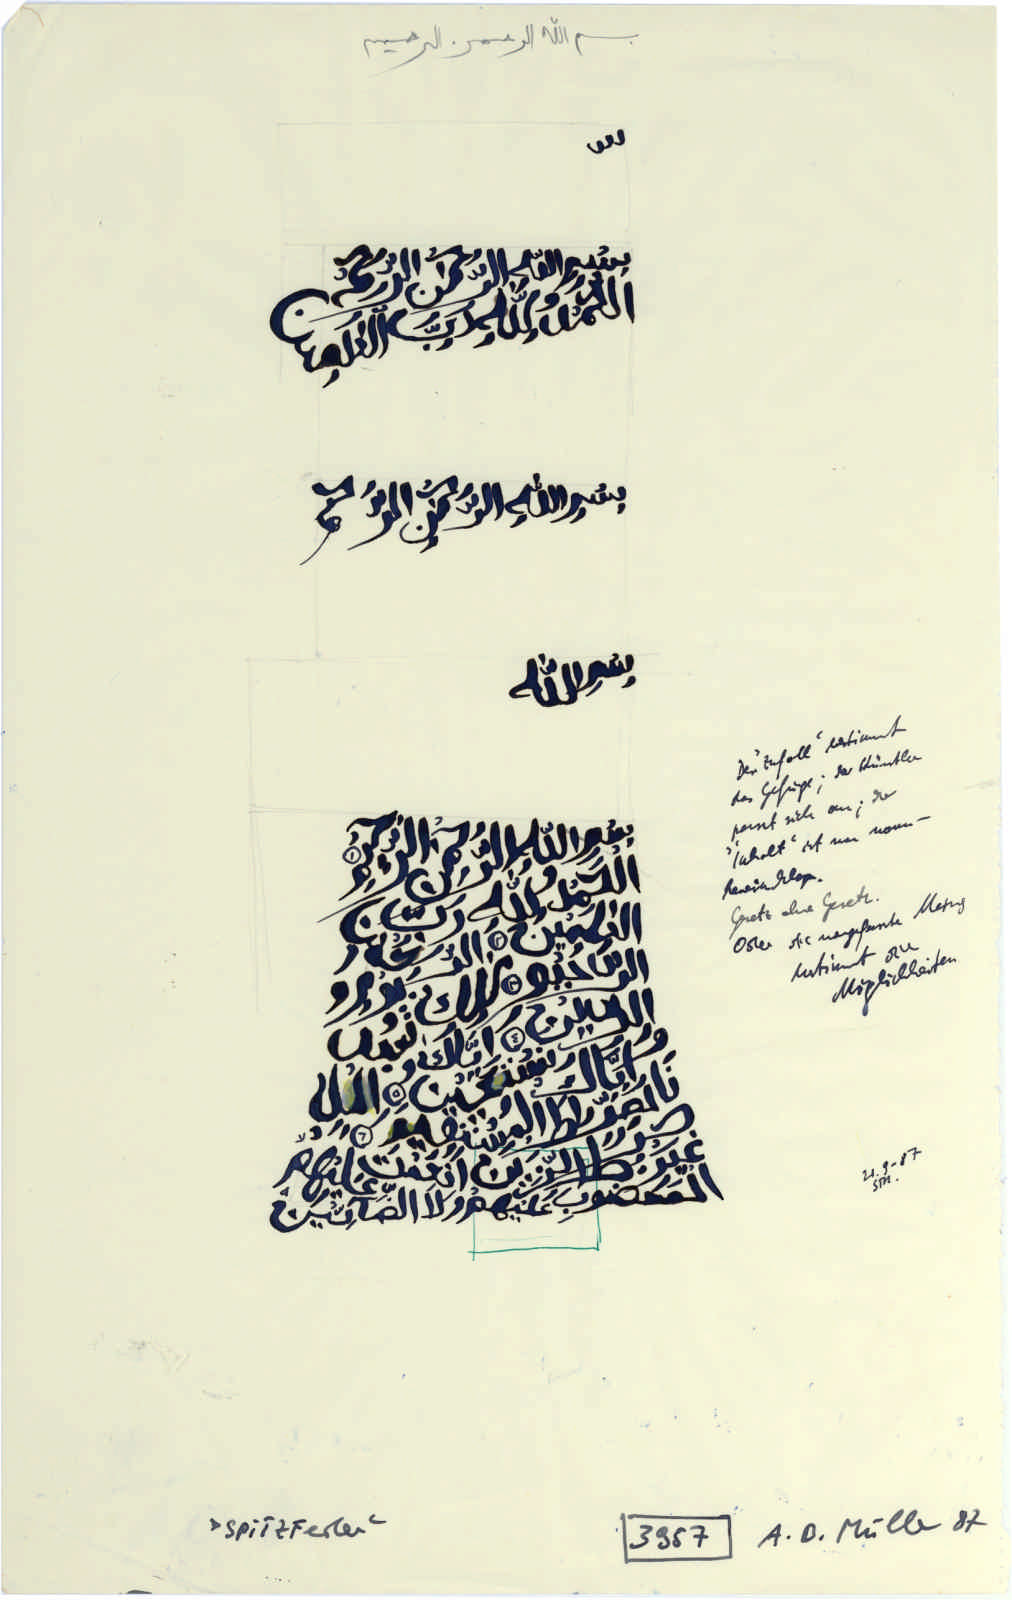 بسم الله الرحمن الرحيم
بِسْمِ اللّٰهِ الرَّحْمٰنِ الرَّحِيم
الْحَمْدُ لِلّٰهِ رَبِّ الْعٰلَمِين
بِسْمِ اللّٰهِ الرَّحْمٰنِ الرَّحِيم
بِسْمِ اللّٰه
بِسْمِ اللّٰهِ الرَّحْمٰنِ الرَّحِيمِ ١
الْحَمْدُ لِلّٰهِ رَبِّ
الْعٰلَمِينَ ٢ الرَّحْمٰنِ
الرَّحِيمِ ٣ مٰلِكِ يَوْمِ
الدِّينِ ٤ اِيَّاكَ نَعْبُدُ
وَاِيَّاكَ نَسْتَعِينُ ٥ اِهْدِ
نَا الصِّرَاطَ الْمُسْتَقِيمَ ٦
صِرَاطَ الَّذِينَ اَنْعَمْتَ عَلَيْهِمْ
غَيْرِ
الْمَغْضُوبِ عَلَيْهِمْ وَلَا الضَّالِّينَ
Der "Zufall" bestimmt
das Gefüge; der Künstler
passt sich an; der
"Inhalt" ist nur
Gesetz ohne Gesetz.
Oder die
bestimmt die
Möglichkeiten
21.9.87
"SPiTZFeder"
3957 A. D. Müller 87